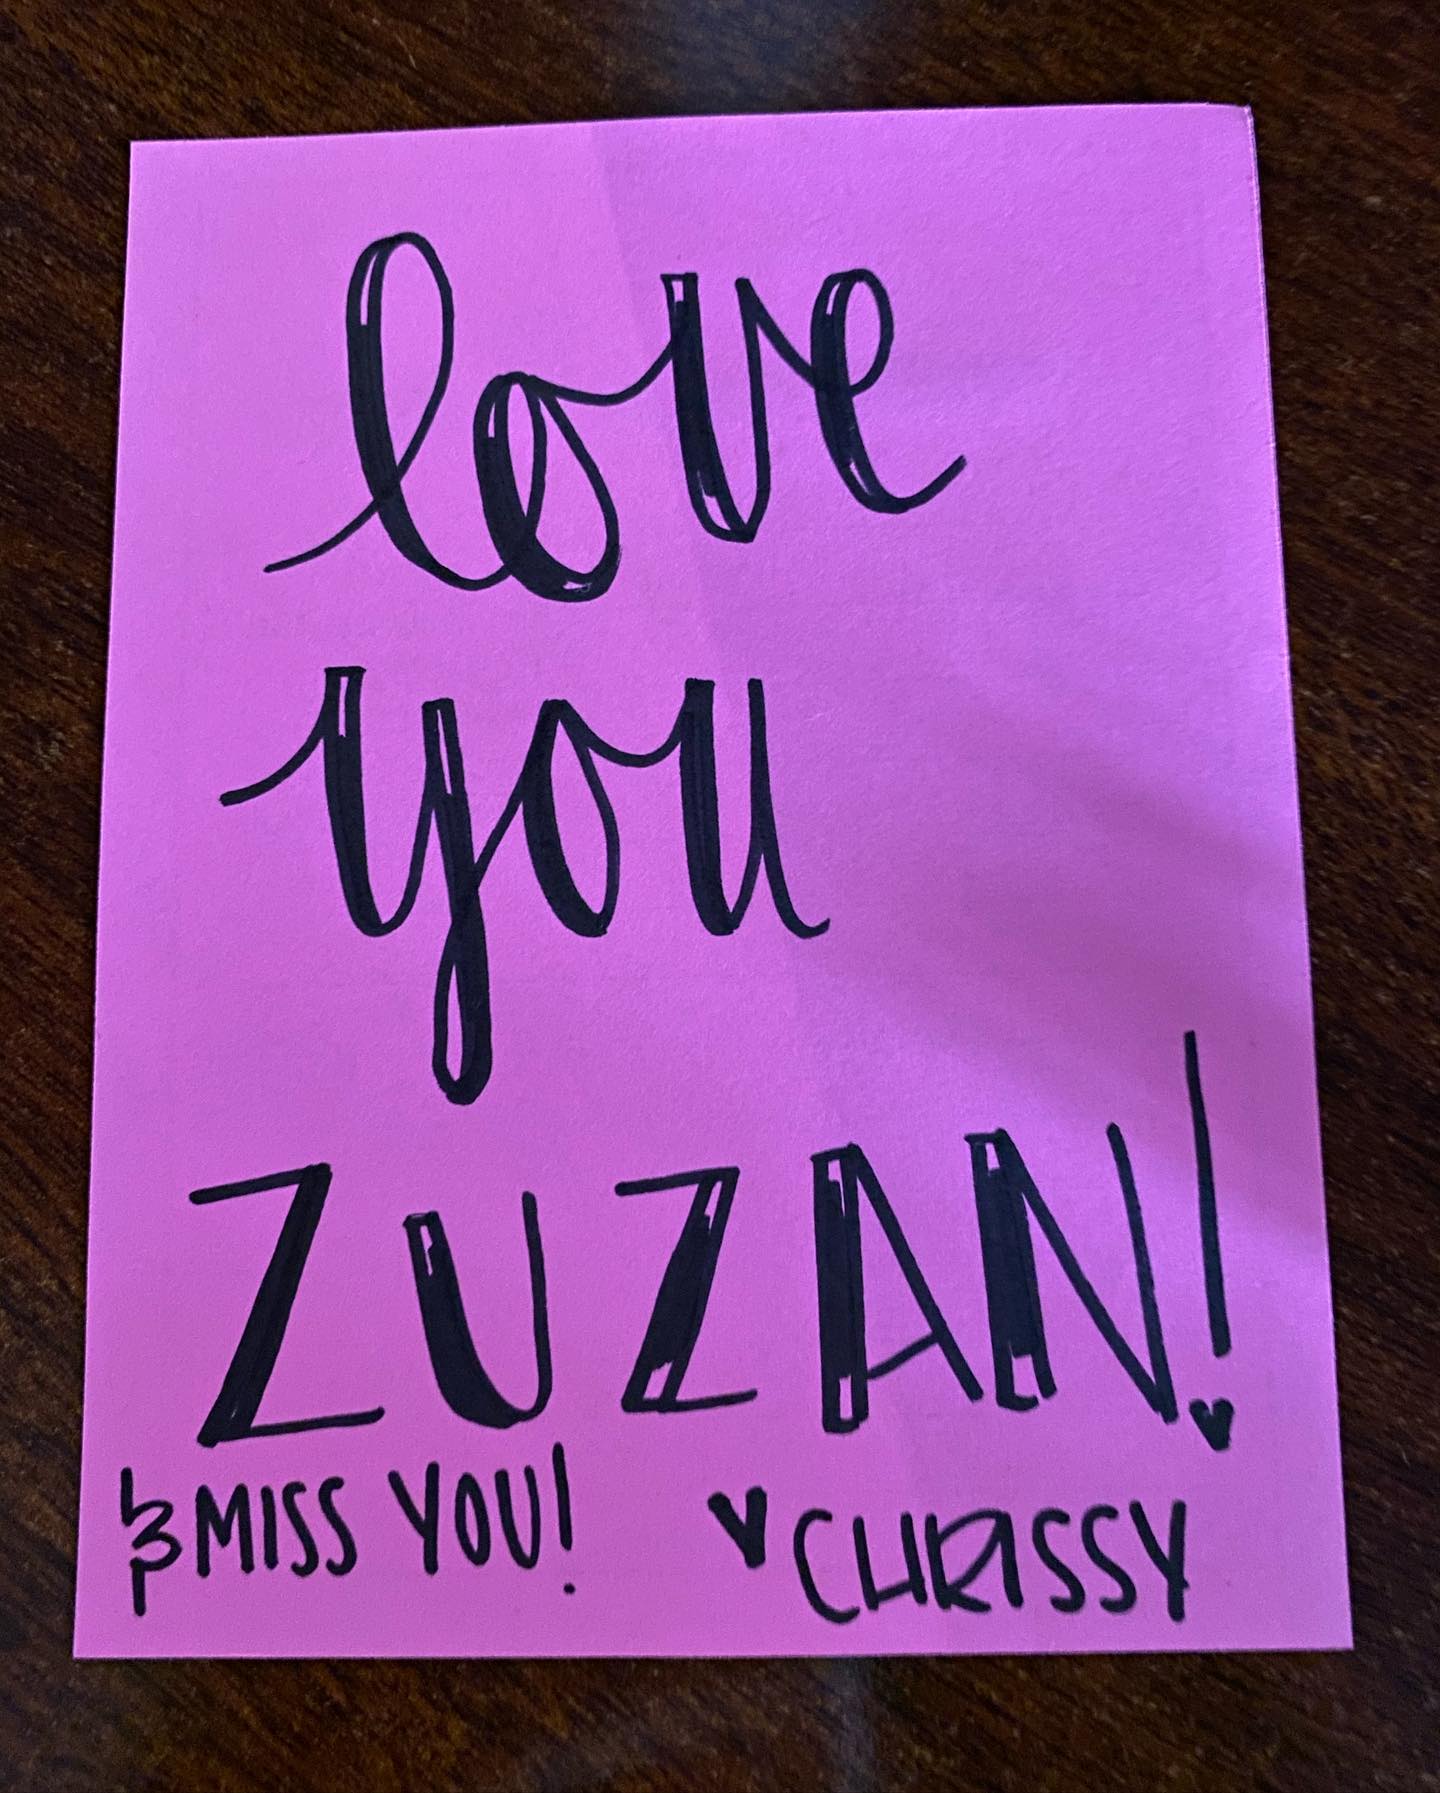 love
you
ZUZAN!
& MISS YOU! ♥ CHRISSY